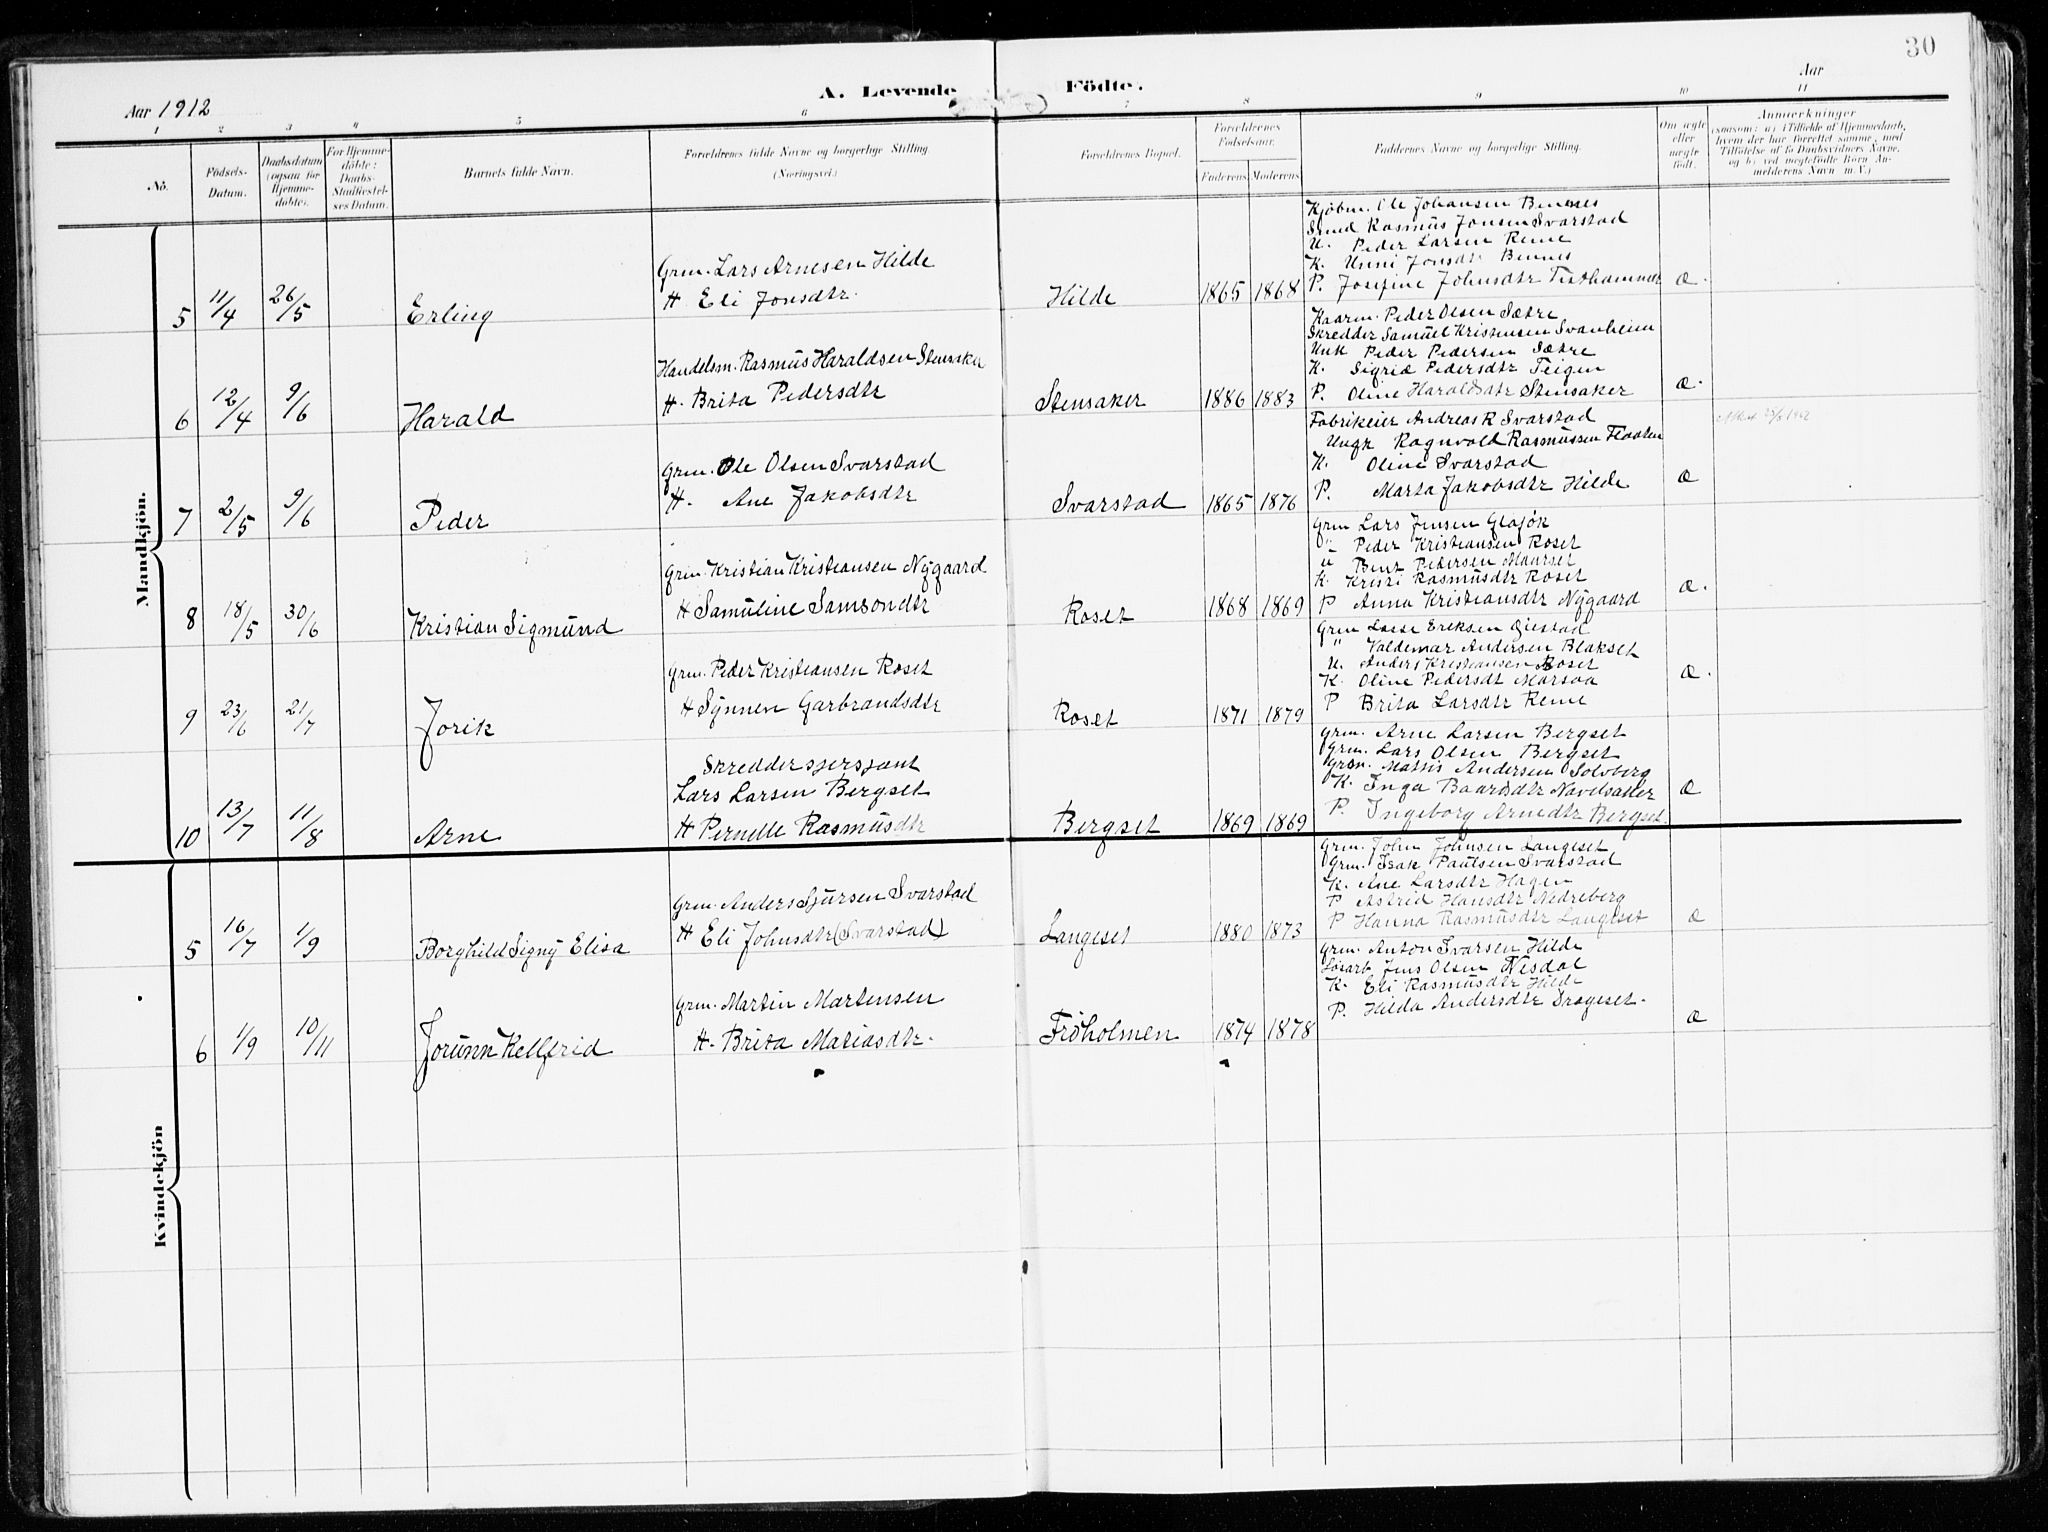 30
Aar 1912
A. Levende Födte.
Aar
1 2 3 4 5 6 7 8 9 10 11
No.
Födsels-Datum.
Daabsdatum (ogsaa for Hjemme-döbte).
For Hjemme-döbte: Daabs-Stadfæstel-ses Datum.
Barnets fulde Navn.
Forældrenes fulde Navne og borgerlige Stilling.
(Næringsvei.)
Forældrenes Bopæl.
Forældrenes Födselsaar.
Faderens Moderens
Faddernes Navne og borgerlige Stilling.
Om ægte eller uægte födt.
Anmærkninger
(saasom: a) i Tilfælde af Hjemmedaab, hvem der har forrettet samme, med Tilföielse af to Daabsvidners Navne, og b) ved uægtefödte Börn An-melderens Navn m. V.)
Mandkjön.
5 11/4 26/5 Erling
Grm. Lars Arnesen Hilde
H Eli Jonsdtr.
Hilde 1865 1868
Kjøbm. Ole Johansen Bennes
Smed Rasmus Jonsen Svarstad
U. Peder Larsen Reme
K. Unni Jonsdtr Bennes
P. Josefine Johnsdtr Tisthammer
Æ.
6 12/4 9/6 Harald
Handelsm. Rasmus Haraldsen Stensaker
H. Brita Pedersdtr
Stensaker 1886 1883
Kaarm. Peder Olsen Sætre
Skredder Samuel Kristensen Svanheim
Unk Peder Pedersen Sætre
K. Sigrid Pedersdtr Teigen
P. Oline Haraldsdtr Stensaker
Æ.
7 2/5 9/6 Peder
Grm. Ole Olsen Svarstad
H. Ane Jakobsdtr
Svarstad 1865 1876
Fabrikeier Andreas R Svarstad
Ungk Ragnvald Rasmussen Flaaten
K. Oline Svarstad
P. Marta Jakobsdtr Hilde
Æ
8 18/5 30/6 Kristian Sigmund
Grm. Kristian Kristiansen Nygaard
H Samuline Samsondtr
Roset 1868 1869
Grm Lars Jensen
" Peder Kristiansen Roset
u Bent Pedersen Maurset
K. Kristi Rasmusdtr Roset
P Anna Kristiansdtr Nygaard
Æ.
9 23/6 21/7 Jorik
Grm. Peder Kristiansen Roset
H Synnen Garbrandsdtr
Roset 1871 1879
Grm Lasse Eriksen Øiestad
" Valdemar Andersen Blakset
U. Anders Kristiansen Roset
K. Oline Pedersdt Marsaa
P Brita Larsdtr Reme
Æ.
10 13/7 11/8 Arne
Skreddersjersjant
Lars Larsen Bergset
H Pernelle Rasmusdtr
Bergset 1869 1869
Grm. Arne Larsen Bergset
Grm. Lars Olsen Bergset
Grm. Mattis Andersen Solvberg
K. Inga Baardsdtr Navelsaker
P. Ingeborg Arnedtr Bergset.
Æ
Kvindekjön
5 16/7 1/9 Borghild Signy Elisa
Grm. Anders Sjursen Svarstad
H Eli Johnsdtr (Svarstad)
Langeset 1880 1873
Grm. John Johnsen Langeset
Grm. Isak Paulsen Svarstad
K. Ane Larsdtr Hagen
P Astrid Hansdtr Nedreberg
P Hanna Rasmusdtr Langeset
Æ
6 1/9 10/11 Jorunn Kellfrid
Grm. Martin Martensen
H. Brita Mariasdtr.
Frøholmen 1874 1878
Grm. Anton Ivarsen Hilde
Løsarb Jens Olsen Nesdal
K. Eli Rasmusdtr Hilde
P. Hilda Andersdtr Drageset.
Æ